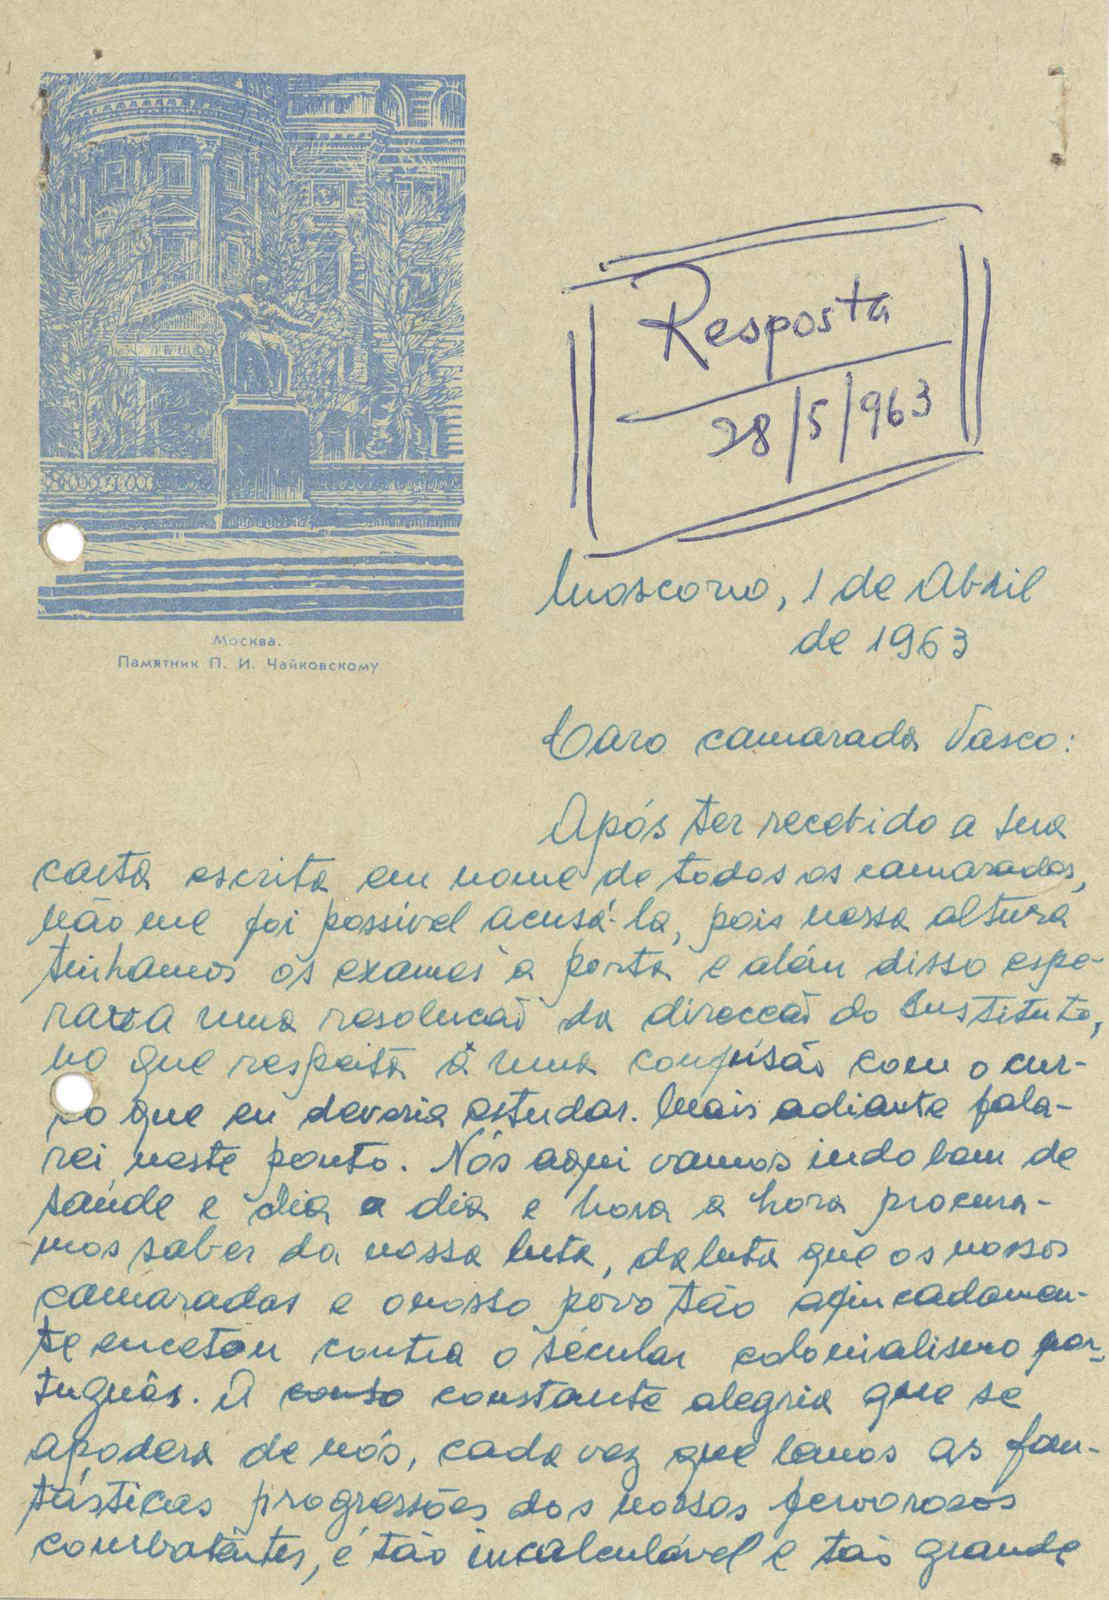 Resposta
28/5/963
Moscovo, 1 de Abril
de 1963
Москва.
Памятник П. И. Чайковскому
Caro camarada Vasco:
Após ter recebido a sua
carta escrita em nome de todos os camaradas,
não me foi possível acusá-la, pois nessa altura
tinhamos os exames à porta e além disso espe-
rava uma resolução da direcção do Instituto,
no que respeita à uma confusão com o cur-
so que eu deveria estudar. Mais adiante fala-
rei neste ponto. Nós aqui vamos indo bem de
saúde e dia a dia e hora a hora procura-
mos saber da nossa luta, da luta que os nossos
camaradas e o nosso povo tão afincadamen-
te encetou contra o secular colonialismo por-
tuguês. A constante alegria que se
apodera de nós, cada vez que lemos as fan-
tásticas progressões dos nossos fervorosos
combatentes, é tão incalculável e tão grande